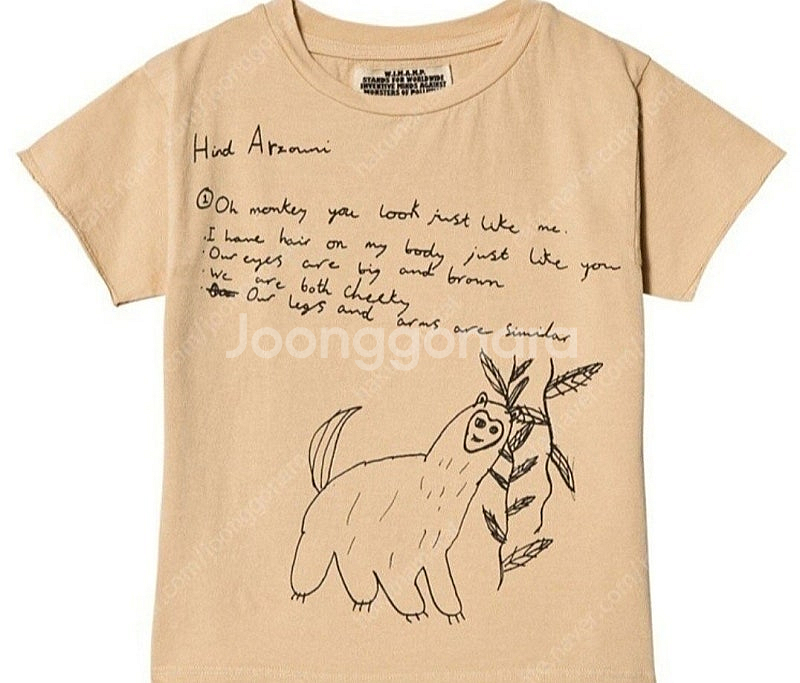 W.I.M.A.M.P.
STANDS FOR WORLDWIDE
INVENTIVE MINDS AGAINST
MONSTERS OF
Hind Arzouni
① Oh monkey you look just like me.
.I have hair on my body just like you
.Our eyes are big and brown
.We are both cheeky
. Our legs and arms are similar
Joonggonara